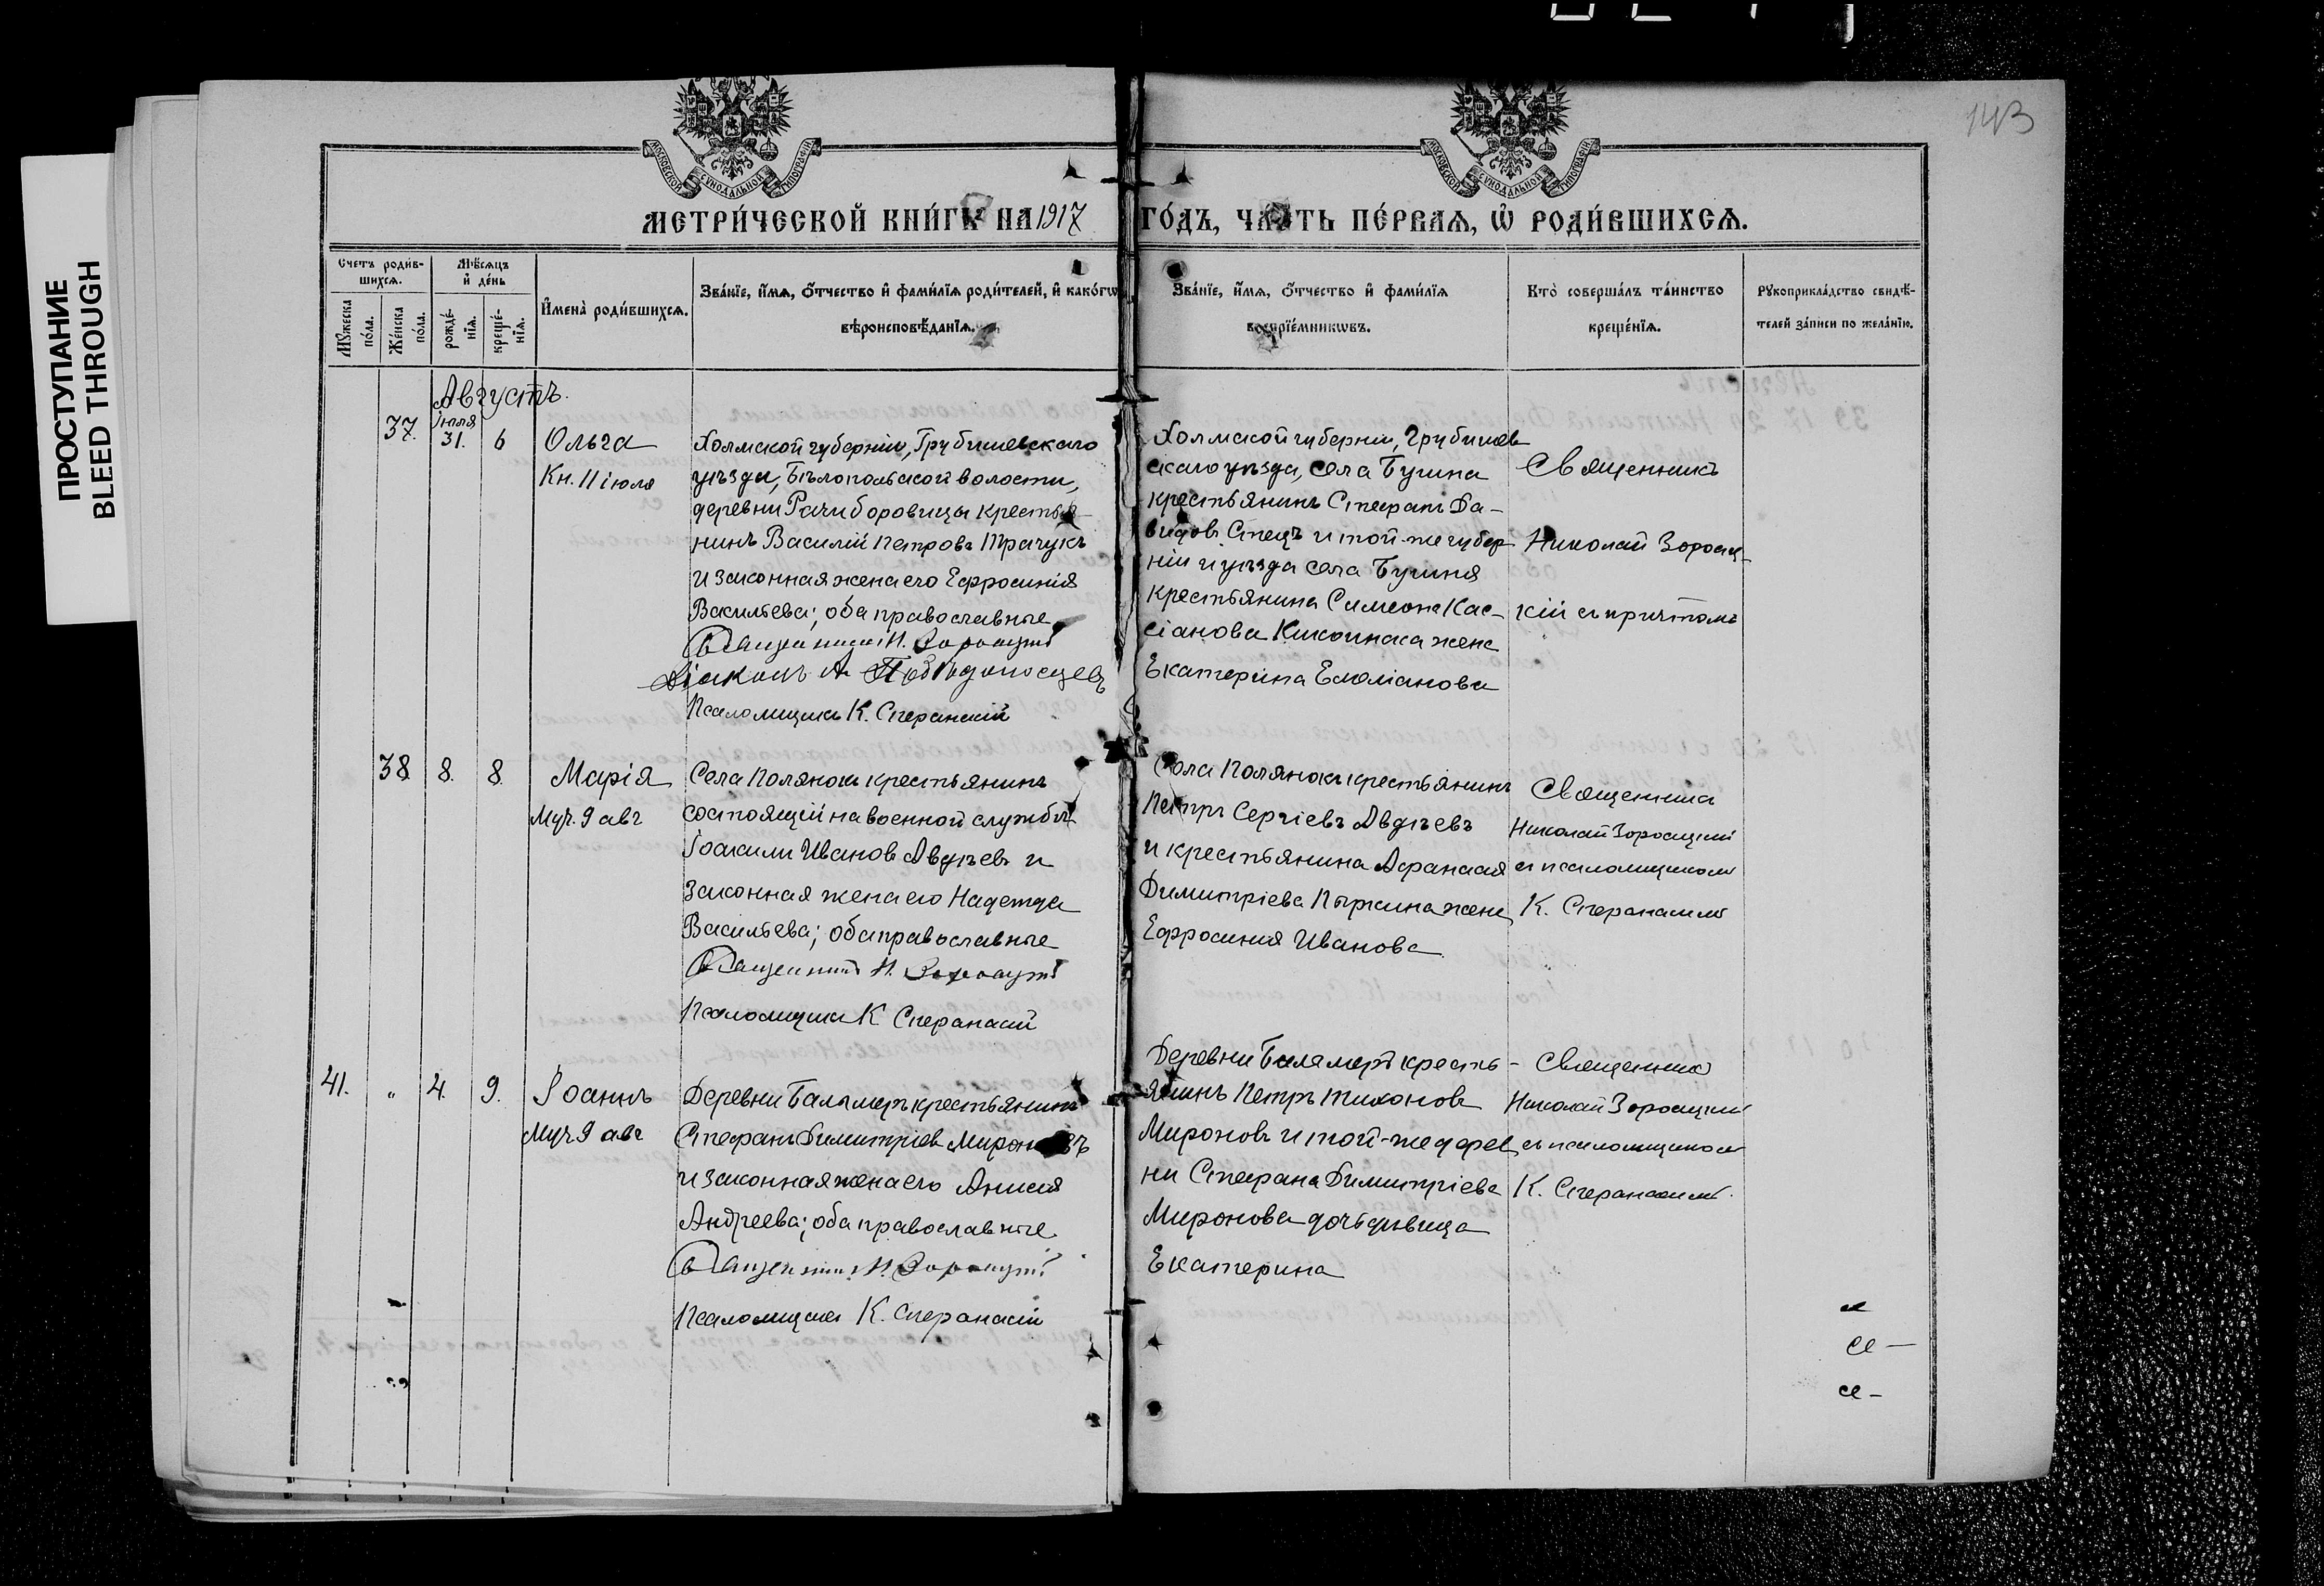 143
ПРОСТУПАНИЕ
BLEED THROUGH
МОСКОВСКОЙ СѴНОДАЛЬНОЙ ТИПОГРАФІИ
МОСКОВСКОЙ СѴНОДАЛЬНОЙ ТИПОГРАФІИ
МЕТРИ́ЧЕСКОЙ КНИ́ГИ НА 1917 ГО́ДЪ, ЧАСТЬ ПЕ́РВАЯ, Ѽ РОДИ́ВШИХСѦ.
Счетъ роди́в-
шихсѧ.
Мꙋжеска
по́ла.
Же́нска
по́ла.
Мѣ́сѧцъ
и҆ де́нь
рожде́-
нїѧ.
креще́-
нїѧ.
И҆мена̀ роди́вшихсѧ.
Зва́нїе, и҆́мѧ, ѻ҆́тчество и҆ фами́лїѧ роди́телей, и҆ како́гѡ
вѣроисповѣ́данїѧ.
Зва́нїе, и҆́мѧ, ѻ҆́тчество и҆ фами́лїѧ
воспрїе́мникѡвъ.
Кто̀ соверша́лъ та́инство
креще́нїѧ.
Рꙋкоприкла́дство свидѣ́-
телей за́писи по жела́нїю.
Августъ.
37. Іюля 31. 6
Ольга
Кн. 11 іюля
Холмской губерніи, Грубешевскаго
уѣзда, Бѣлопольской волости,
деревни Рачиборовицы крестья-
нинъ Василій Петровъ Трачукъ
и законная жена его Ефросинія
Васильева; оба православные
Священникъ Н. Зороацкій
Діаконъ А Победоносцевъ
Псаломщикъ К. Сперанскій
Холмской губерніи, Грубешев
скаго уѣзда, села Бусина
крестьянинъ Стефанъ Да-
видовъ Стецъ и той-же губер
ніи и уѣзда села Бусина
крестьянина Симеона Кас-
сіанова жена
Екатерина Емеліанова
Священникъ
Николай Зороац-
кій съ причтомъ
38 8. 8.
Марія
Муч. 9 авг
Села Полянокъ крестьянинъ
состоящій на военной службѣ
Іоакимъ Ивановъ Авдѣевъ и
законная жена его Надежда
Васильева; оба православные
Священникъ Н. Зороацкій
Псаломщикъ К Сперанскій
Села Полянокъ крестьянинъ
Петръ Сергіевъ Авдѣевъ
и крестьянина Афанасія
Димитріева Пыркина жена
Ефросинія Иванова
Священникъ
Николай Зороацкій
съ псаломщикомъ
К. Сперанскимъ
41. " 4. 9.
Іоаннъ
Муч 9 авг
Деревни Балямеръ крестьянинъ
Стефанъ Димитріев Мироновъ
и законная жена его Анисія
Андреева; оба православные
Священникъ Н. Зороацкій
Псаломщикъ К. Сперанскій
Деревни Балямеръ кресть-
янинъ Петръ Тихоновъ
Мироновъ и той-же дерев
ни Стефана Димитріева
Миронова дочь дѣвица
Екатерина
Священникъ
Николай Зороацкій
съ псаломщикомъ
К. Сперанскимъ.